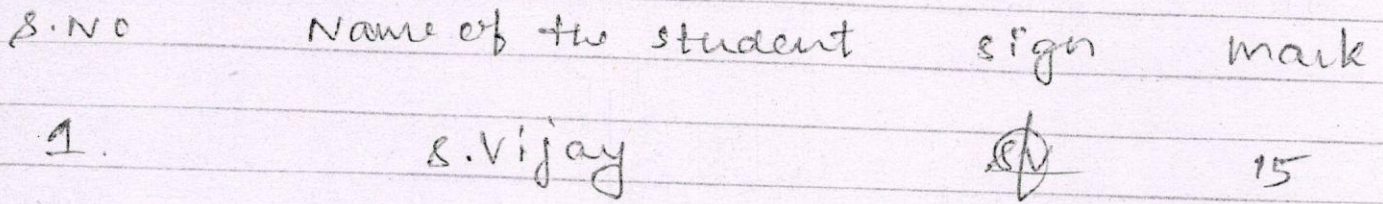 S.No Name of the student sign mark
1. S.Vijay SV 15